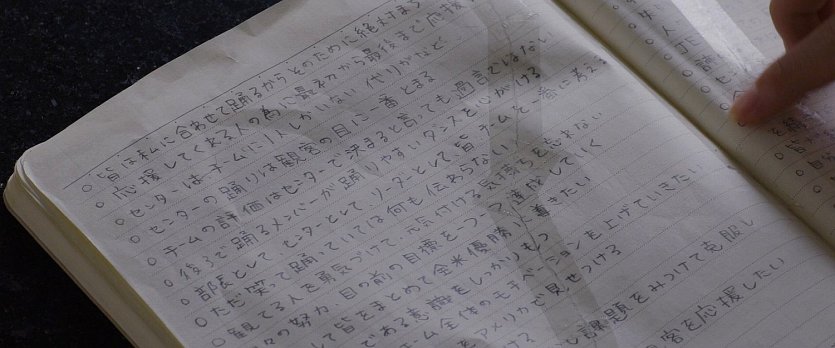 ○皆は私に合わせて踊るからそのために絶えずまわ
応援してくれる人の為に最初から最後まで応援
○センターはチームに1人しかいない 代りがなど
○センターの踊りは観客の目に一番とまる
○チームの評価はセンターで決まると言っても過言ではない
○後ろで踊るメンバーが踊りやすいダンスを心がける
○部長として、センターとして、リーダーとして、皆、チームを一番に考える
○ただ笑って踊っていては何も伝わらない
○観てる人を勇気づけて、元気付ける気持ちを忘れない
の努力、目の前の目標を一つ一つ達成していく
して皆をまとめて全米優勝に導きたい
である意識をしっかりもつ
ーム全体のモチベーションを上げていきたい
アメリカで見せつける
し課題をみつけて克服し
客を応援したい